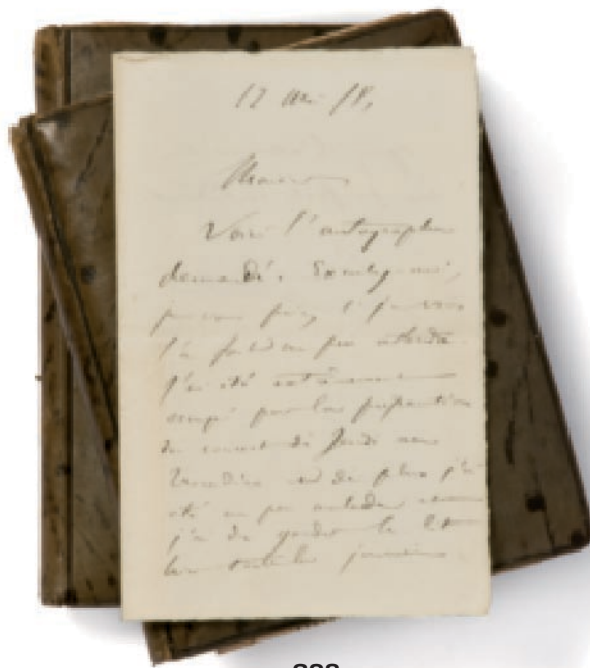 17 Mai 78,
Monsieur
Voici l'autographe
demandé. Excusez-moi,
je vous prie, si je vous
l'ai fait un peu attendre.
J'ai été extrêmement
occupé par la préparation
du concert de Jeudi
Vendredi et de plus j'ai
été un peu malade
j'ai dû garder le lit
toute la journée